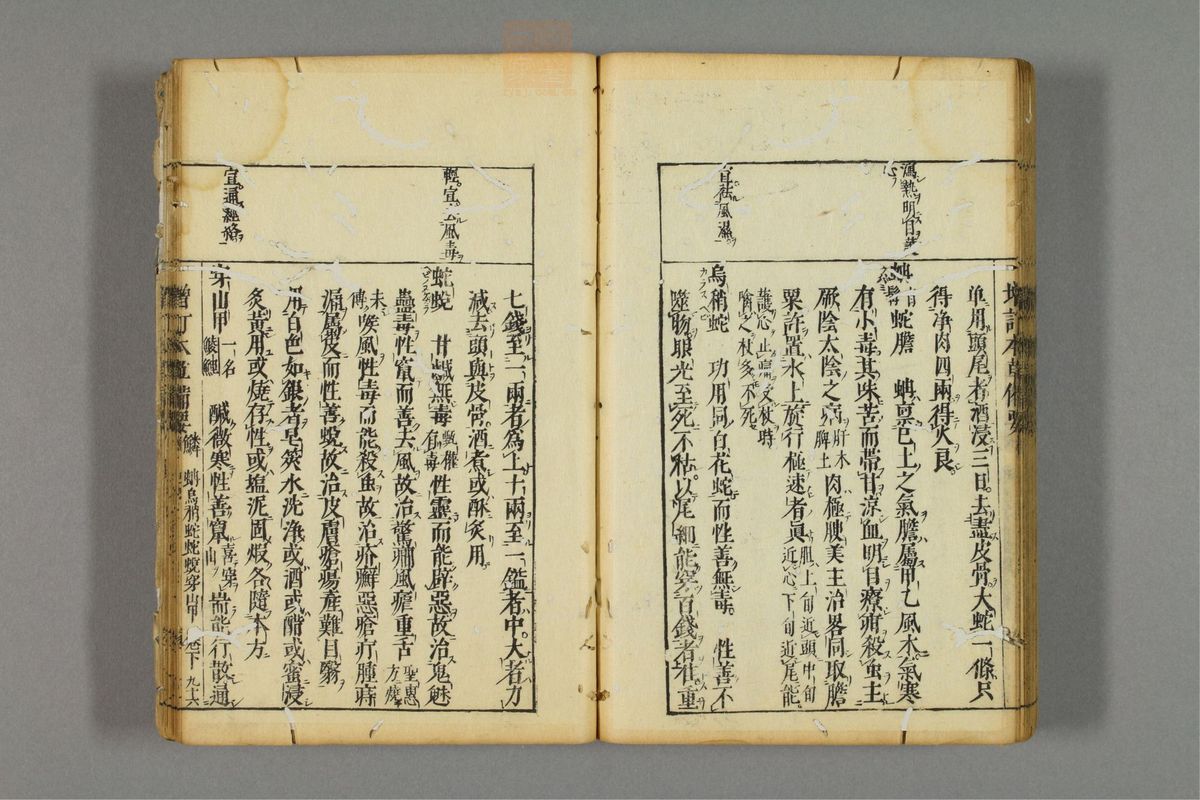 瀉熱明目
宜祛風濕
増訂本草備要
单用頭尾者酒浸三日去盡皮骨大蛇一條只
得淨肉四兩得火良
蚺蛇膽 蚺禀巳土之氣膽屬甲乙風木氣寒
有小毒其味苦而帶甘凉血明目療疳殺虫主
厥陰太陰之病肝木脾土肉極腴美主治畧同取膽
粟許置水上旋行極速者眞胆上旬近頭中旬近心下旬近尾能
護心止痛受杖時噙之杖多不死
烏稍蛇 功用同白花蛇而性善無毒 性善不
噬物眼光至死不枯以尾細能穿百錢者佳重
輕宜去風毒
宜通經絡
七錢至一兩者為上十兩至一鎰者中大者力
減去頭與皮骨酒煮或酥炙用
蛇蛻 甘鹹無毒甄權有毒性靈而能辟惡故治鬼魅
蠱毒性竄而善去風故治驚癇風瘧重舌聖惠方燒
末傅喉風性毒而能殺虫故治疥癬惡瘡疔腫痔
漏屬皮而性善蛻故治皮膚瘡瘍產難目翳
用白色如銀者皂莢水洗淨或酒或醋或蜜浸
炙黄用或燒存性或塩泥固煅各隨本方
穿山甲一名鯪鯉 鹹微寒性善竄喜穿山耑能行散通
増訂本草備要 鱗 蚺烏稍蛇蛇蛻穿山甲 巻下 九十六